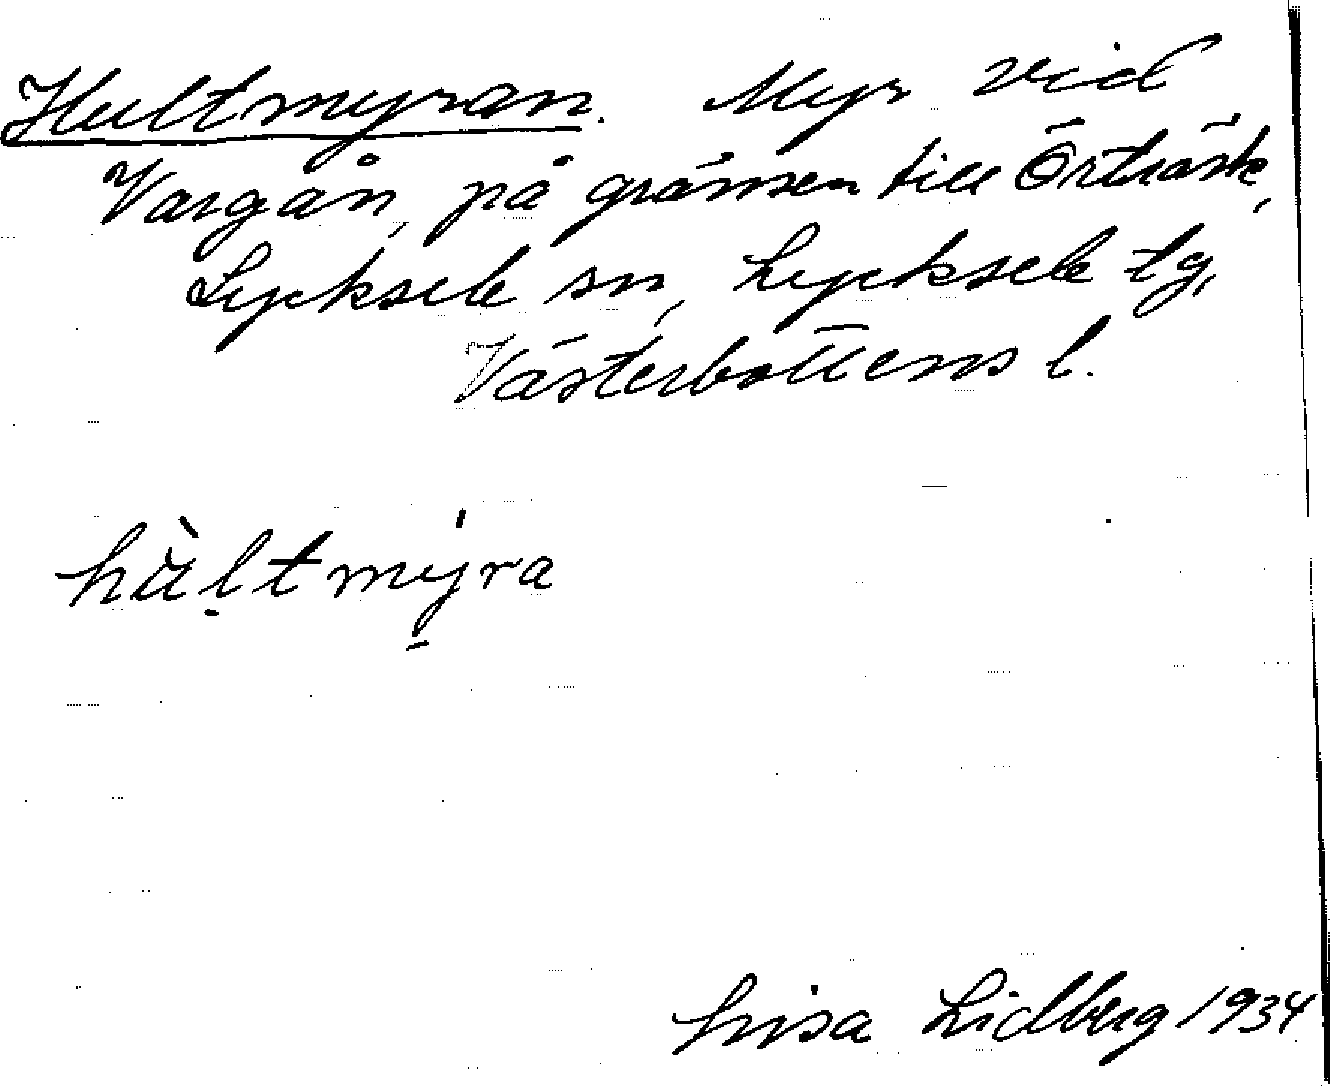 Hultmyran. Myr vid
Vargån, på gränsen till Örträsk,
Lycksele sn, Lycksele tg,
Västerbottens l.
hùl̠tmy̠ra
Lisa Lidberg 1934